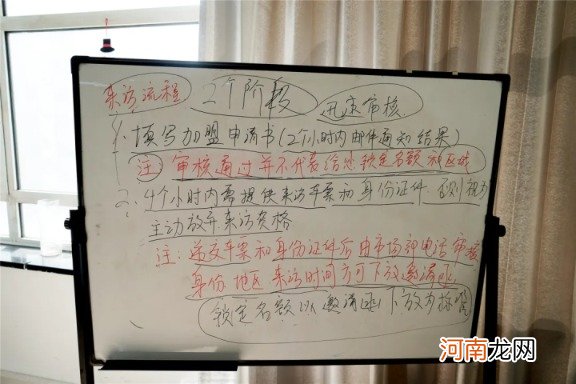 来访流程 2个阶段 孔庆审核
1. 填写加盟申请书(2个小时内邮件通知结果)
注 审核通过并不代表给您锁定名额和区域
2. 4个小时内需提供来访车票和身份证件 否则视为
主动放弃来访资格
注:递交车票和身份证件后由市场部电话审核
身份 地区 来访时间方可下放邀请函
锁定名额以邀请函下放为标准
河南龙网